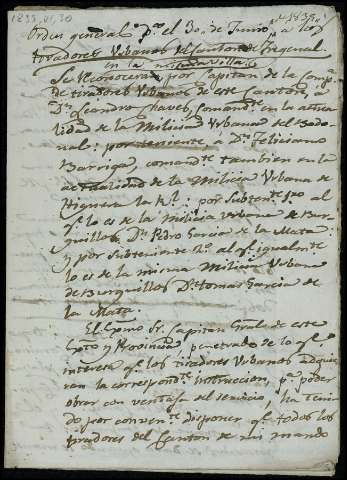 1835, VI, 30
1835
Orden general pª el 30 de Junio a los
tiradores Urbanos del Canton de Fregenal
en la misma villa
Se Reconocera por Capitan de la Compª
de tiradores Urbanos de este Canton, á
Dn. Leandro Chaves, Comandte en la actua-
lidad de la Milicia Urbana del Bodo-
nal: por teniente á Dn. Feliciano
Barriga, comandte tambien en la
actualidad de la Milicia Urbana de
Higuera la Rl: por Subtente 1º al
qe lo es de la Milicia urbana de Bur-
guillos Dn. Pedro Garcia de la Mata:
y por Subteniente 2º al qe igualmte
lo es de la misma Milicia Urbana
de Burguillos Dn. tomas Garcia de
la Mata.
El Exmo Sr. Capitan Gral de este
Exto y Provincia, penetrado de lo qe
interesa qe los tiradores Urbanos adquie-
ran la correspondte instruccion, pª poder
obrar con ventaja del servicio, ha teni-
do por convente disponer qe todos los
tiradores del Canton de mi mando